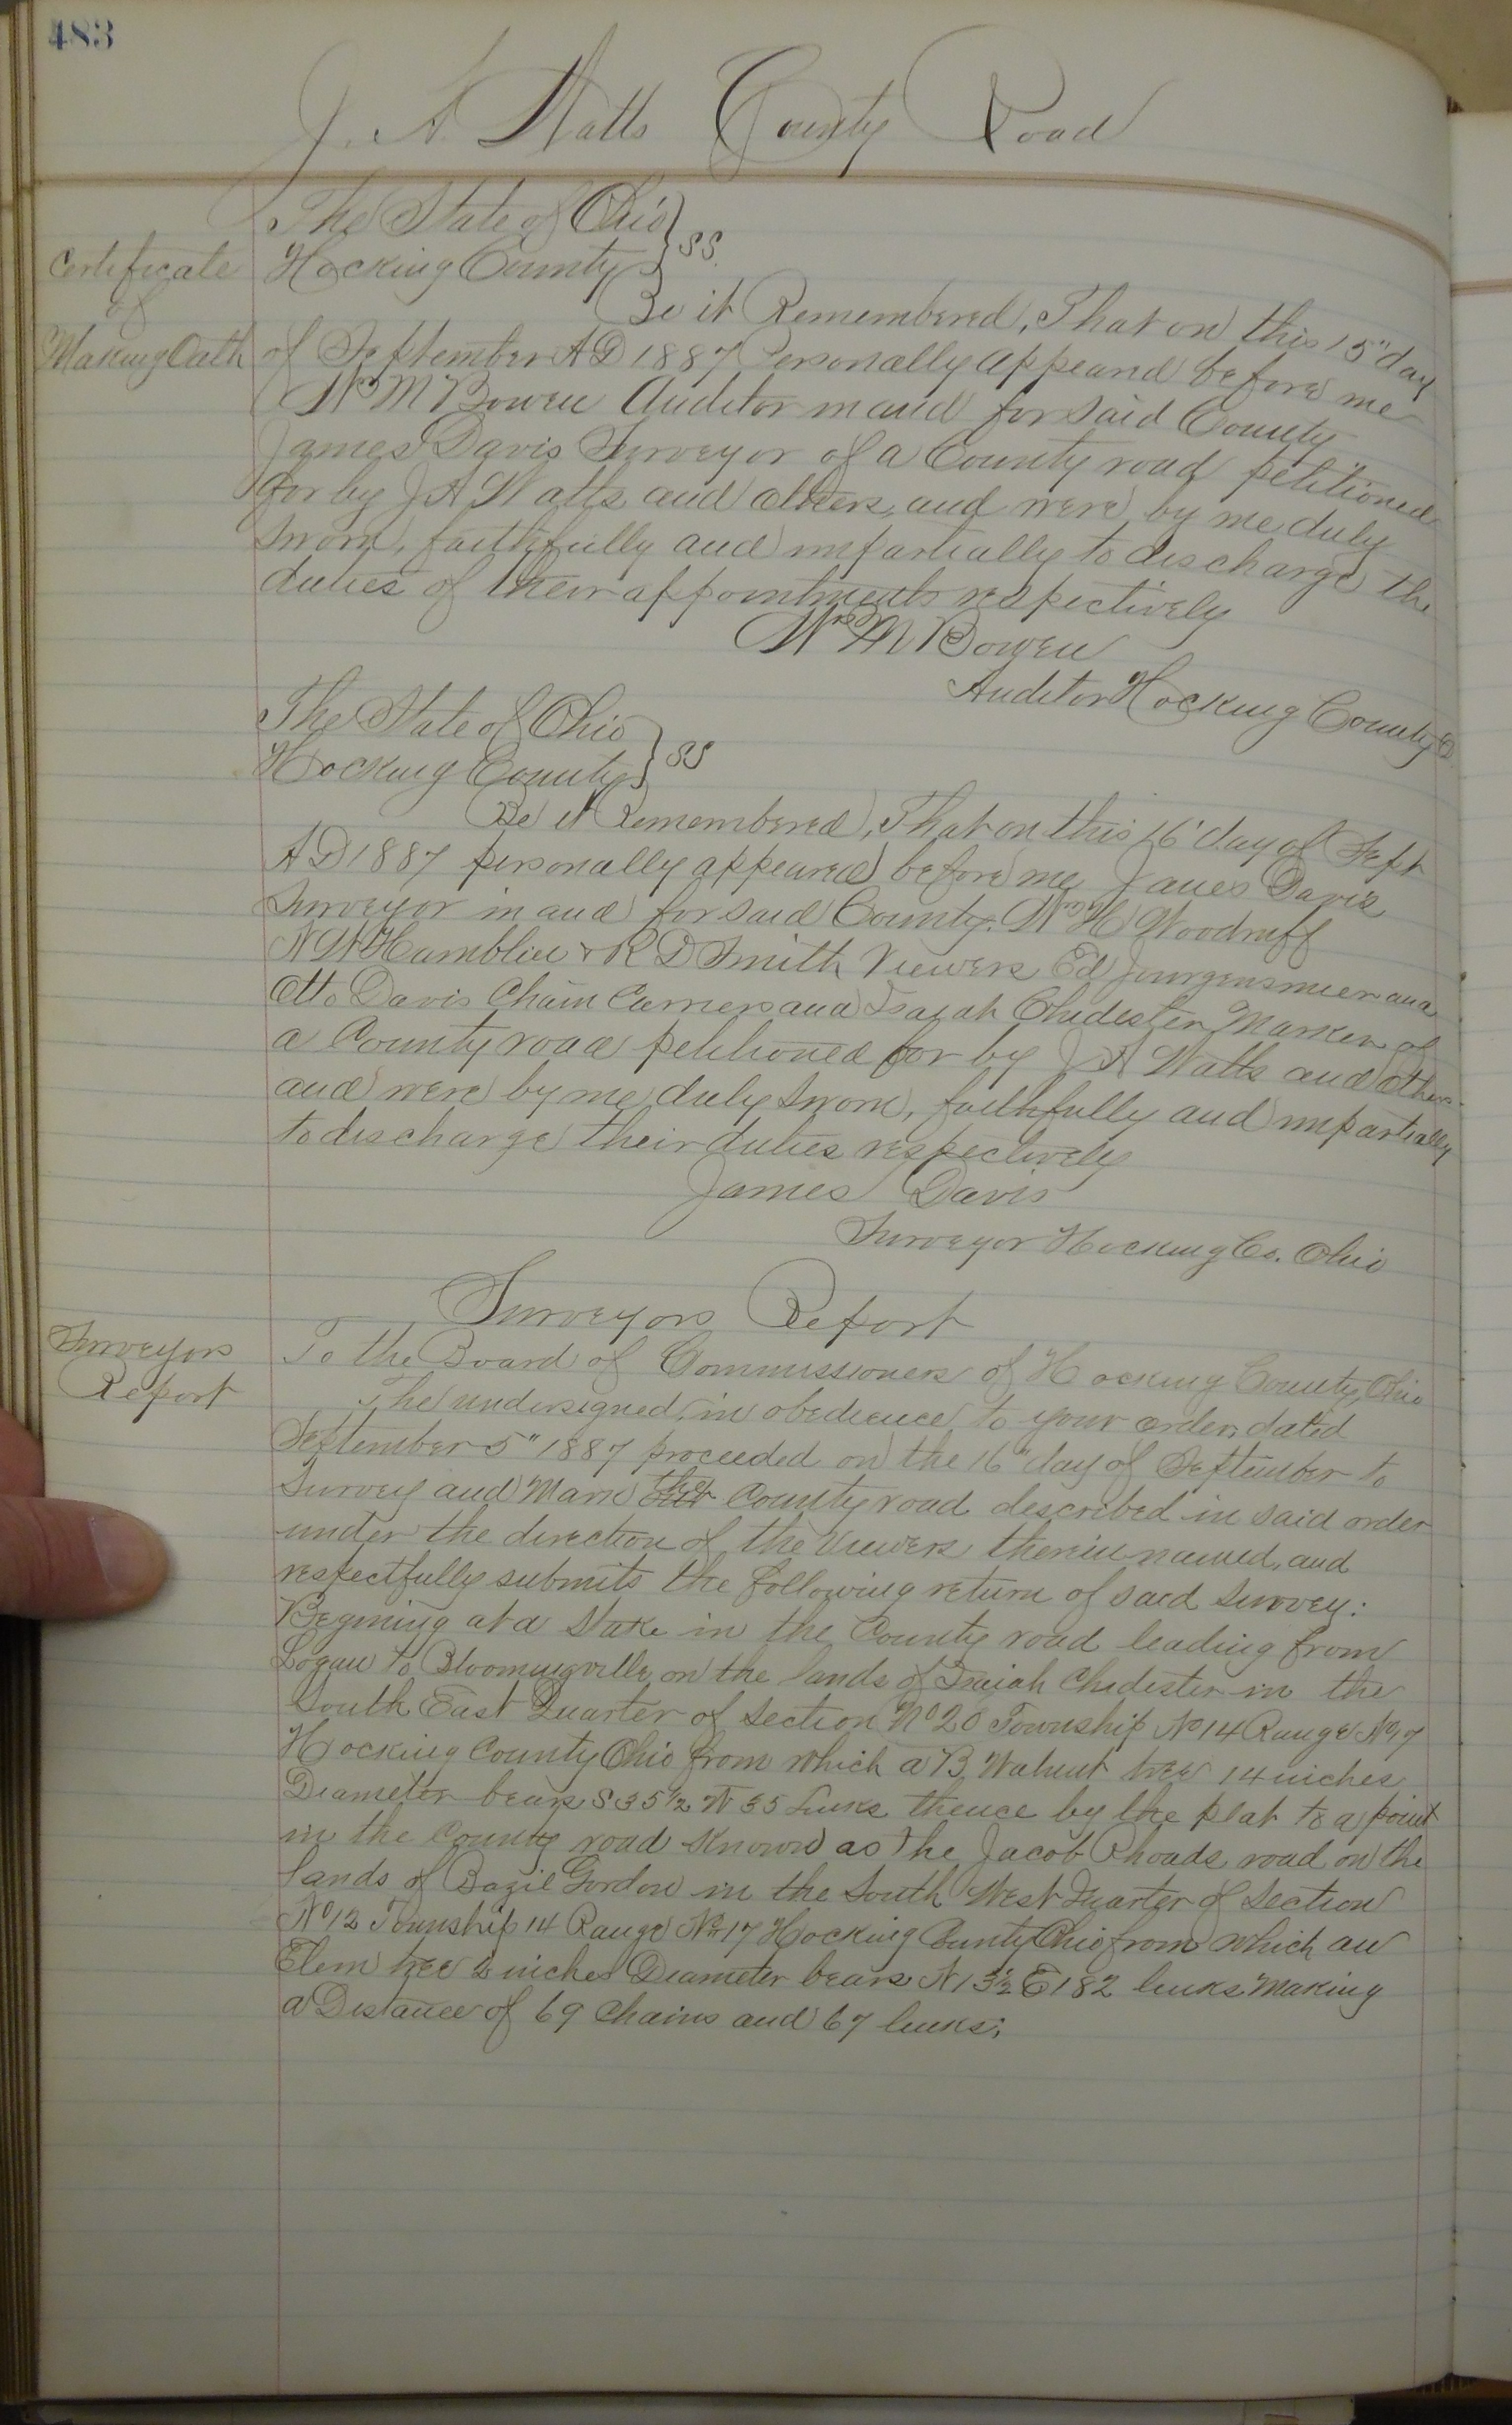 483
J. A. Watts County Road
The State of Ohio }
Certificate Hocking County } SS.
of Be it Remembered, That on this 15" day
Making Oath of September AD 1887 Personally appeard before me
Wm M Bowen Auditor in and for said County
James Davis Surveyor of a County road petitioned
for by J A Watts and others, and were by me duly
sworn, faithfully and impartially to discharge the
duties of their appointments respectively
Wm M Bowen
Auditor Hocking County O
The State of Ohio }
Hocking County } SS
Be it Remembered, That on this 16" day of Sept
AD 1887 personally appeared before me James Davis
Surveyor in and for said County. Wm H Woodruff
N W Hamblin & R D Smith Viewers Ed Jurgensmeier and
Otto Davis Chain Carriers and Isaiah Chidester Marker of
a County road petitioned for by J A Watts and others
and were by me duly sworn, faithfully and impartially
to discharge their duties respectively
James Davis
Surveyor Hocking Co. Ohio
Surveyors Report
Surveyors To the Board of Commissioners of Hocking County, Ohio
Report The undersigned, in obedience to your order, dated
September 5" 1887 proceeded on the 16" day of September to
Survey and Mark the County road described in said order
under the direction of the viewers therein named, and
respectfully submits the following return of said survey:
Begining at a Stake in the County road leading from
Logan to Bloomingville, on the lands of Isaiah Chidester in the
South East Quarter of section No 20 Township No 14 Range No 17
Hocking County Ohio from which a B. Walnut tree 14 inches
Diameter bears S 35 1/2 W 35 Links thence by the plat to a point
in the County road Known as the Jacob Rhoads road on the
lands of Bazil Gordon in the South West Quarter of Section
No 12 Township 14 Range No 17 Hocking County Ohio from which an
Elem tree 2 inches Diameter bears N 13 1/2 E 182 links Making
a Distance of 69 Chains and 67 links;